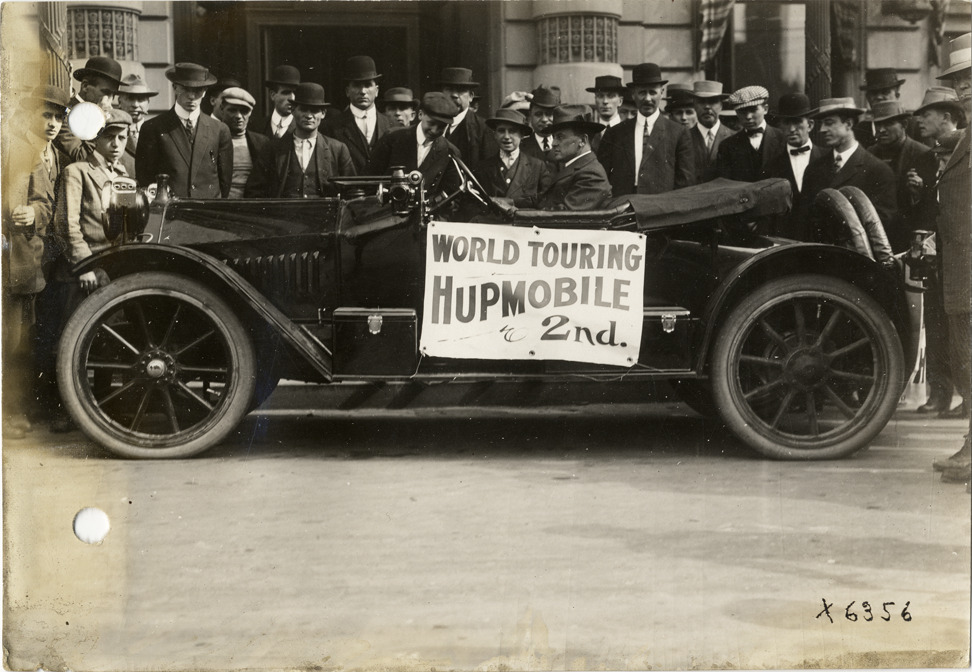 WORLD TOURING
HUPMOBILE
2nd.
X6356